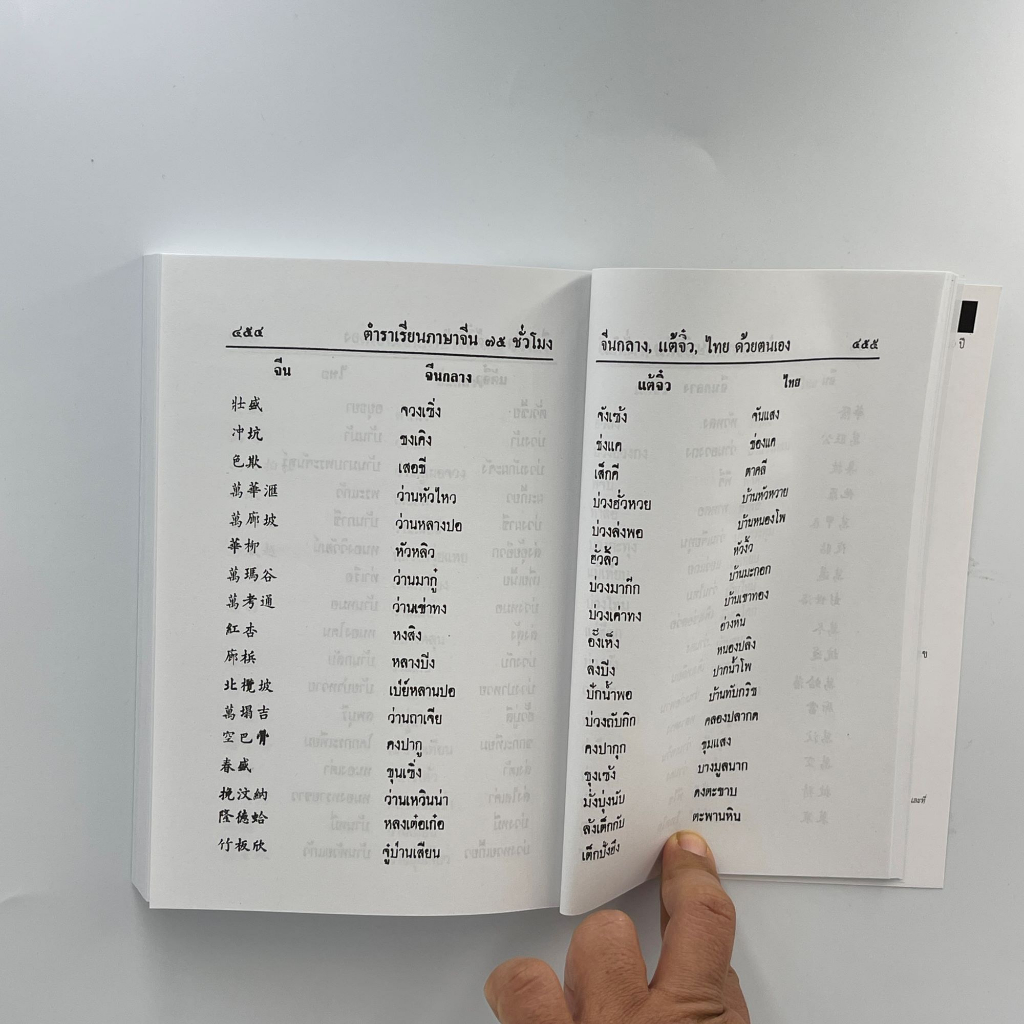 ๔๕๔ ตำราเรียนภาษาจีน ๗๕ ชั่วโมง
จีน จีนกลาง
壯盛 จวงเซิ่ง
冲坑 ชงเคิง
色欺 เสอชี
萬華滙 ว่านหัวไหว
萬廊坡 ว่านหลางปอ
華柳 หัวหลิว
萬瑪谷 ว่านมากู๋
萬考通 ว่านเข่าทง
紅杏 หงสิง
廊梹 หลางปิง
北欖坡 เบ่ย์หลานปอ
萬塌吉 ว่านถาเจีย
空巴骨 คงปากู
春盛 ชุนเซิ่ง
挽汶納 ว่านเหวินน่า
隆德蛤 หลงเต๋อเก๋อ
竹板欣 จู๋บ่านเสียน
จีนกลาง, แต้จิ๋ว, ไทย ด้วยตนเอง ๔๕๕
แต้จิ๋ว ไทย
จังเซ้ง จันแสง
ช่งแค ช่องแค
เส็กคี ตาคลี
บ่วงฮั่วหวย บ้านหัวหวาย
บ่วงล่งพอ บ้านหนองโพ
ฮั้วลิ้ว หัวงิ้ว
บ่วงมาก๊ก บ้านมะกอก
บ่วงเค่าทง บ้านเขาทอง
อั้งเห็ง อ่างหิน
ล่งบึ่ง หนองปลิง
ปักน้ำพอ ปากน้ำโพ
บ่วงถับกิก บ้านทับกริช
คงปากุก คลองปลากด
ชุงเซ้ง ชุมแสง
มั่งบุ่งนับ บางมูลนาก
ล้งเต็กกับ ดงตะขาบ
เต็กปังฮึง ตะพานหิน